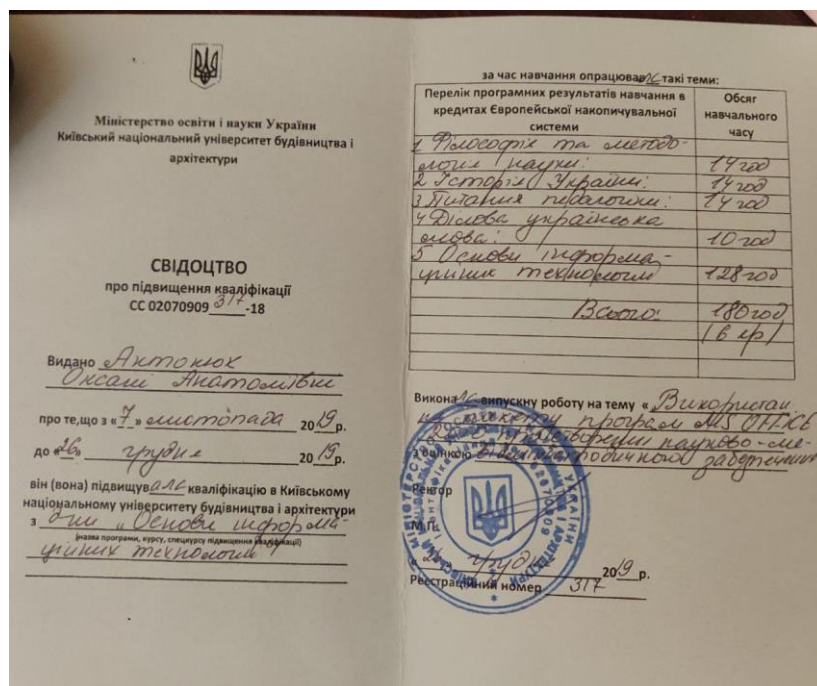 Міністерство освіти і науки України
Київський національний університет будівництва і
архітектури
СВІДОЦТВО
про підвищення кваліфікації
СС 02070909 317 -18
Видано Антонюк
Оксані Анатоліївні
про те,що з « 7 » листопада 2019р.
до «26» грудня 2019р.
він (вона) підвищувала кваліфікацію в Київському
національному університету будівництва і архітектури
з дни „Основи інформа-
(назва програми, курсу, спецкурсу підвищення кваліфікації)
ційних технологій"
за час навчання опрацювала такі теми:
Перелік програмних результатів навчання в
кредитах Європейської накопичувальної
системи
Обсяг
навчального
часу
1 Філософія та методо-
логія науки: 14 год
2 Історія України: 14 год
3 Питання педагогіки: 14 год
4 Ділова українська
мова: 10 год
5 Основи інформа-
ційних технологій 128 год
Всього: 180 год
(6 кр)
Виконала випускну роботу на тему « Використан
пакету програм MS OFFICE
при створенні науково-ме-
з оцінкою тодичного забезпечення
Ректор
М.П.
« » груд 2019 р.
Реєстраційний номер 317